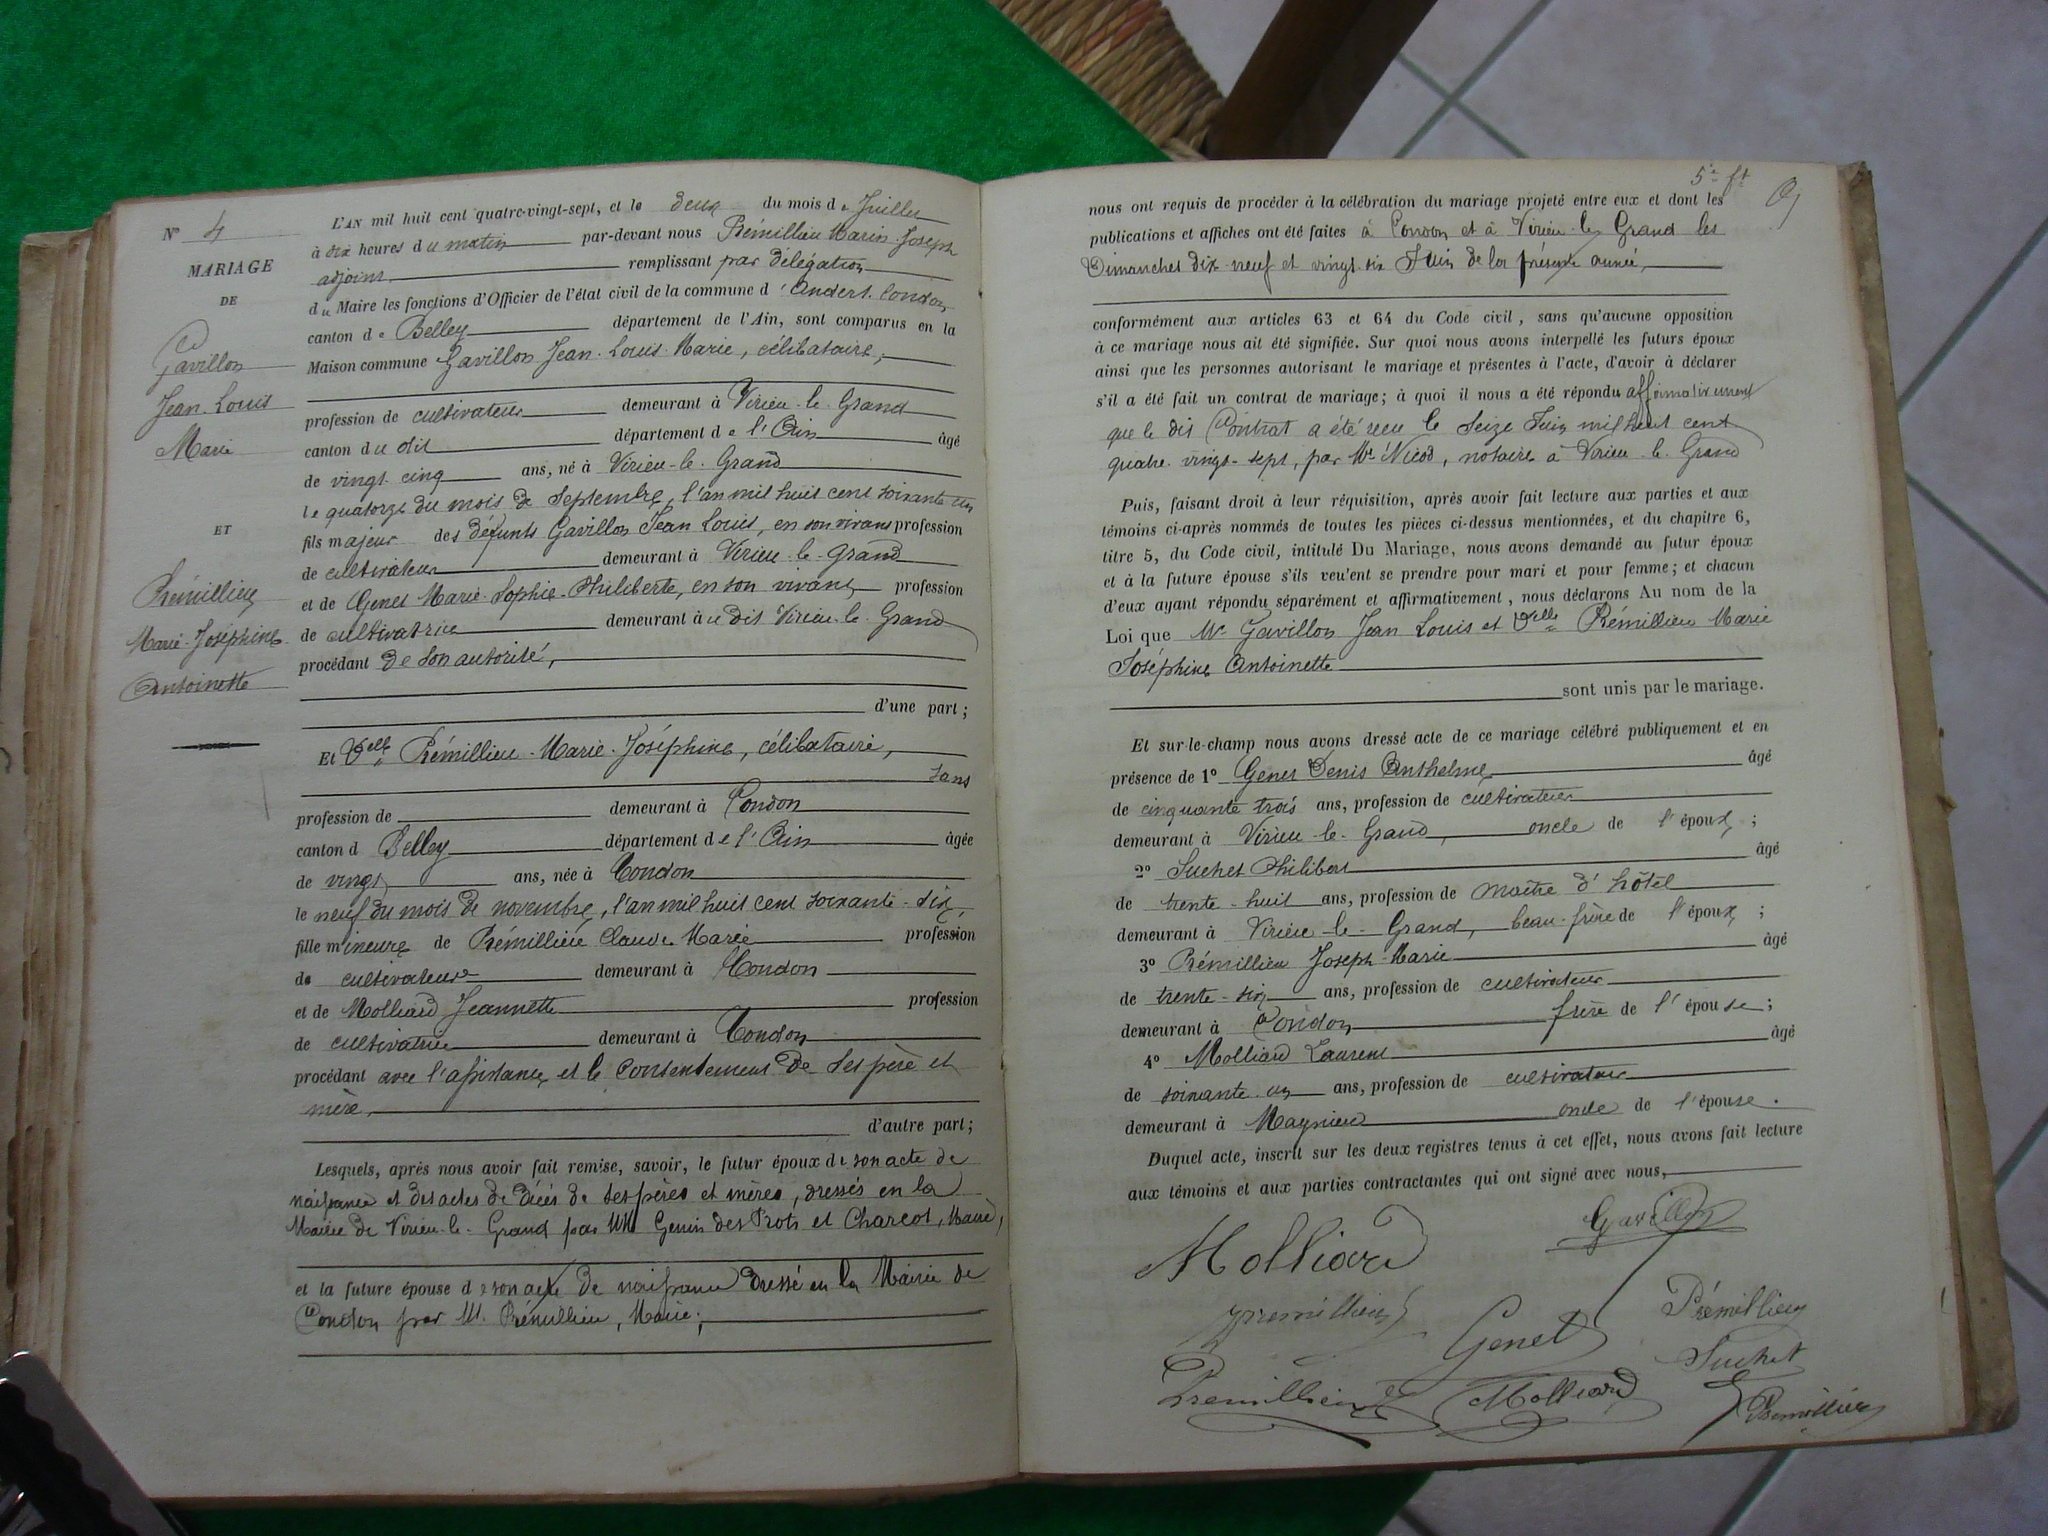 N° 4
MARIAGE
DE
Gavillon
Jean-Louis
Marie
ET
Prémillieu
Marie-Joséphine
Antoinette
L'AN mil huit cent quatre-vingt-sept, et le deux du mois de Juillet
à dix heures du matin par-devant nous Prémillieu Marin Joseph
adjoint remplissant par délégation
du Maire les fonctions d'Officier de l'état civil de la commune d'Andert-Condon
canton de Belley département de l'Ain, sont comparus en la
Maison commune Gavillon Jean-Louis-Marie, célibataire,
profession de cultivateur demeurant à Virieu-le-Grand
canton du dit département de l'Ain âgé
de vingt-cinq ans, né à Virieu-le-Grand
le quatorze du mois de Septembre, l'an mil huit cent soixante-un
fils majeur des défunts Gavillon Jean Louis, en son vivant profession
de cultivateur demeurant à Virieu-le-Grand
et de Genet Marie-Sophie-Philiberte, en son vivant profession
de cultivatrice demeurant au dit Virieu-le-Grand
procédant de son autorité,
d'une part;
Et Delle Prémillieu-Marie-Joséphine, célibataire,
sans
profession de demeurant à Condon
canton d Belley département de l'Ain âgée
de vingt ans, née à Condon
le neuf du mois de novembre, l'an mil huit cent soixante-six,
fille mineure de Prémillieu Claude Marie profession
de cultivateur demeurant à Condon
et de Molliard Jeannette profession
de cultivatrice demeurant à Condon
procédant avec l'assistance et le Consentement de Ses père et
mère,
d'autre part;
Lesquels, après nous avoir fait remise, savoir, le futur époux de son acte de
naissance et des actes de décès de ses pères et mères, dressés en la
Mairie de Virieu-le-Grand par MM Genin des Prots et Charcot, Maire,
et la future épouse de son acte de naissance dressé en la Mairie de
Condon par M. Prémillieu, Maire;
5e ft
nous ont requis de procéder à la célébration du mariage projeté entre eux et dont les
publications et affiches ont été faites à Condon et à Virieu-le-Grand les
Dimanches dix-neuf et vingt-six Juin de la présente année,
conformément aux articles 63 et 64 du Code civil, sans qu'aucune opposition
à ce mariage nous ait été signifiée. Sur quoi nous avons interpellé les futurs époux
ainsi que les personnes autorisant le mariage et présentes à l'acte, d'avoir à déclarer
s'il a été fait un contrat de mariage; à quoi il nous a été répondu affirmativement
que le dit Contrat a été reçu le Seize Juin mil huit cent
quatre-vingt-sept, par Me Nicod, notaire à Virieu-le-Grand
Puis, faisant droit à leur réquisition, après avoir fait lecture aux parties et aux
témoins ci-après nommés de toutes les pièces ci-dessus mentionnées, et du chapitre 6,
titre 5, du Code civil, intitulé Du Mariage, nous avons demandé au futur époux
et à la future épouse s'ils veu'ent se prendre pour mari et pour femme; et chacun
d'eux ayant répondu séparément et affirmativement, nous déclarons Au nom de la
Loi que Mr Gavillon Jean Louis et Delle Prémillieu Marie
Joséphine Antoinette
sont unis par le mariage.
Et sur-le-champ nous avons dressé acte de ce mariage célébré publiquement et en
présence de 1° Genet Denis Anthelme âgé
de cinquante trois ans, profession de cultivateur
demeurant à Virieu-le-Grand, oncle de l'époux;
2° Suchet Philibert âgé
de trente-huit ans, profession de maître d'hôtel
demeurant à Virieu-le-Grand, beau-frère de l'époux;
3° Prémillieu Joseph-Marie âgé
de trente-six ans, profession de cultivateur
demeurant à Condon frère de l'épouse;
4° Molliard Laurent âgé
de soixante-un ans, profession de cultivateur
demeurant à Magnieu oncle de l'épouse.
Duquel acte, inscrit sur les deux registres tenus à cet effet, nous avons fait lecture
aux témoins et aux parties contractantes qui ont signé avec nous,
Molliard
Gavillon
premillieu
Genet
Prémillieu
Suchet
Premillieu
Molliard
Premillieu